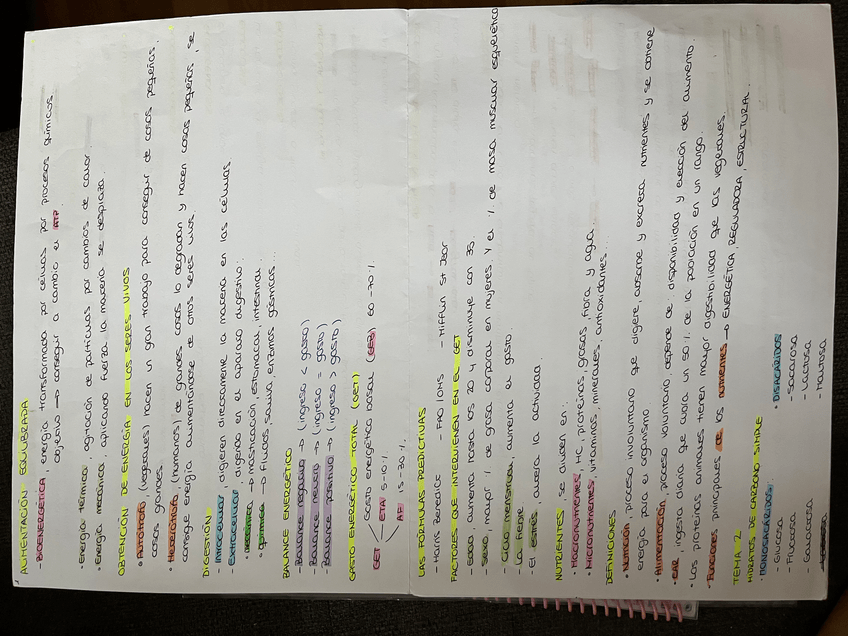 ALIMENTACIÓN EQUILIBRADA
- BIOENERGÉTICA, energía transformada por células por procesos químicos.
objetivo → conseguir a cambio el ATP.
• Energía térmica: agitación de partículas por cambios de calor.
• Energía mecánica, aplicando fuerza la materia se desplaza.
OBTENCIÓN DE ENERGÍA EN LOS SERES VIVOS
• Autótrofo, (vegetales) hacen un gran trabajo para conseguir de cosas pequeñas,
cosas grandes.
• Heterótrofo, (humanos) de grandes cosas lo degradan y hacen cosas pequeñas, se
consigue energía alimentándose de otros seres vivos.
DIGESTIÓN
- Intracelular: digieren directamente la materia en las células.
- Extracelular, digerido en el aparato digestivo.
• mecánica → masticación, estomacal, intestinal.
• química → Fluidos, saliva, enzimas gástricas...
BALANCE ENERGÉTICO
- Balance negativo → (ingreso < gasto)
- Balance neutro → (ingreso = gasto)
- Balance positivo → (ingreso > gasto)
GASTO ENERGÉTICO TOTAL (GET)
Gasto energético basal (GEB) 60-70%
GET ETA 5-10%
AF 15-30%
LAS FÓRMULAS PREDICTIVAS
- Harris Benedict - FAO/OMS - Mifflin St Jeor
FACTORES QUE INTERVIENEN EN EL GET
- Edad, aumenta hasta los 20 y disminuye con 35.
- Sexo, mayor % de grasa corporal en mujeres. Y el % de masa muscular esquelética
- Ciclo menstrual, aumenta el gasto.
- La fiebre
- El estrés, altera la actividad.
NUTRIENTES, se dividen en:
• Macronutrientes, HC, proteínas, grasas, fibra y agua.
• Micronutrientes, vitaminas, minerales, antioxidantes...
DEFINICIONES
• Nutrición, proceso involuntario que digiere, absorbe y excreta nutrientes y se obtiene
energía para el organismo.
• Alimentación, proceso voluntario, depende de: disponibilidad y elección del alimento.
• EAR, ingesta diaria que avala un 50% de la población en un rango.
• Las proteínas animales tienen mayor digestibilidad que las vegetales.
• Funciones principales de los nutrientes → ENERGÉTICA, REGULADORA, ESTRUCTURAL.
TEMA 2
HIDRATOS DE CARBONO SIMPLE
• MONOSACÁRIDOS:
- Glucosa
- Fructosa
- Galactosa
• DISACÁRIDOS
- Sacarosa
- Lactosa
- Maltosa